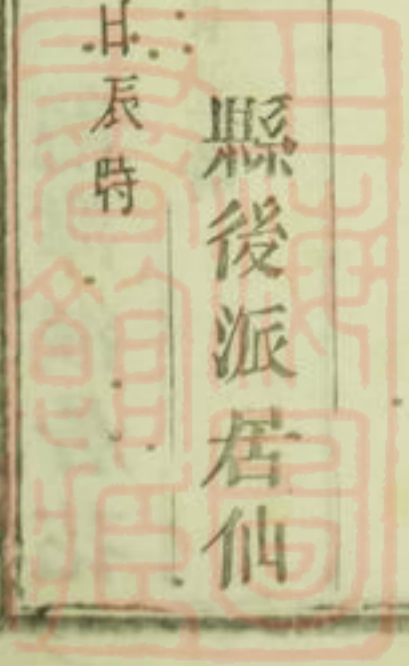 縣後派居仙
日辰時